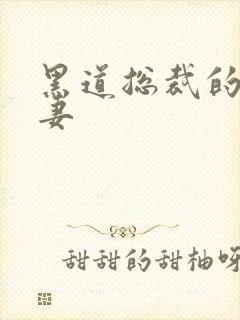 黑道总裁的
妻
甜甜的甜柚呀